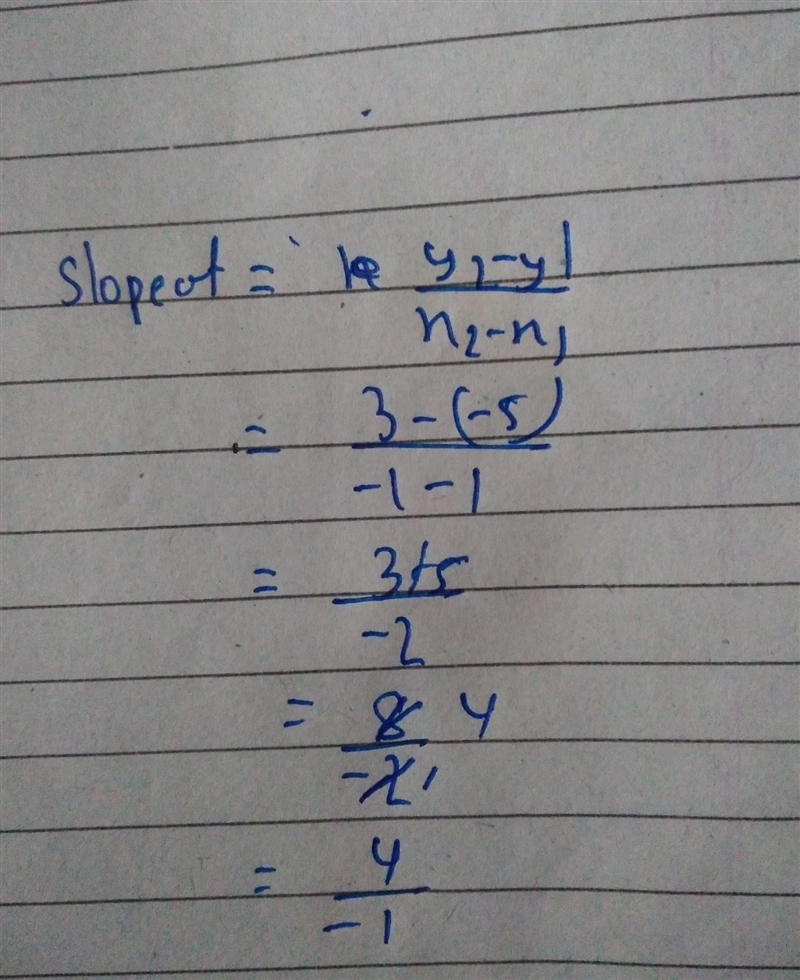 Slope of = y₂-y1
x₂-x₁
= 3-(-5)
-1-1
= 3+5
-2
= 8 4
-2 1
= 4
-1